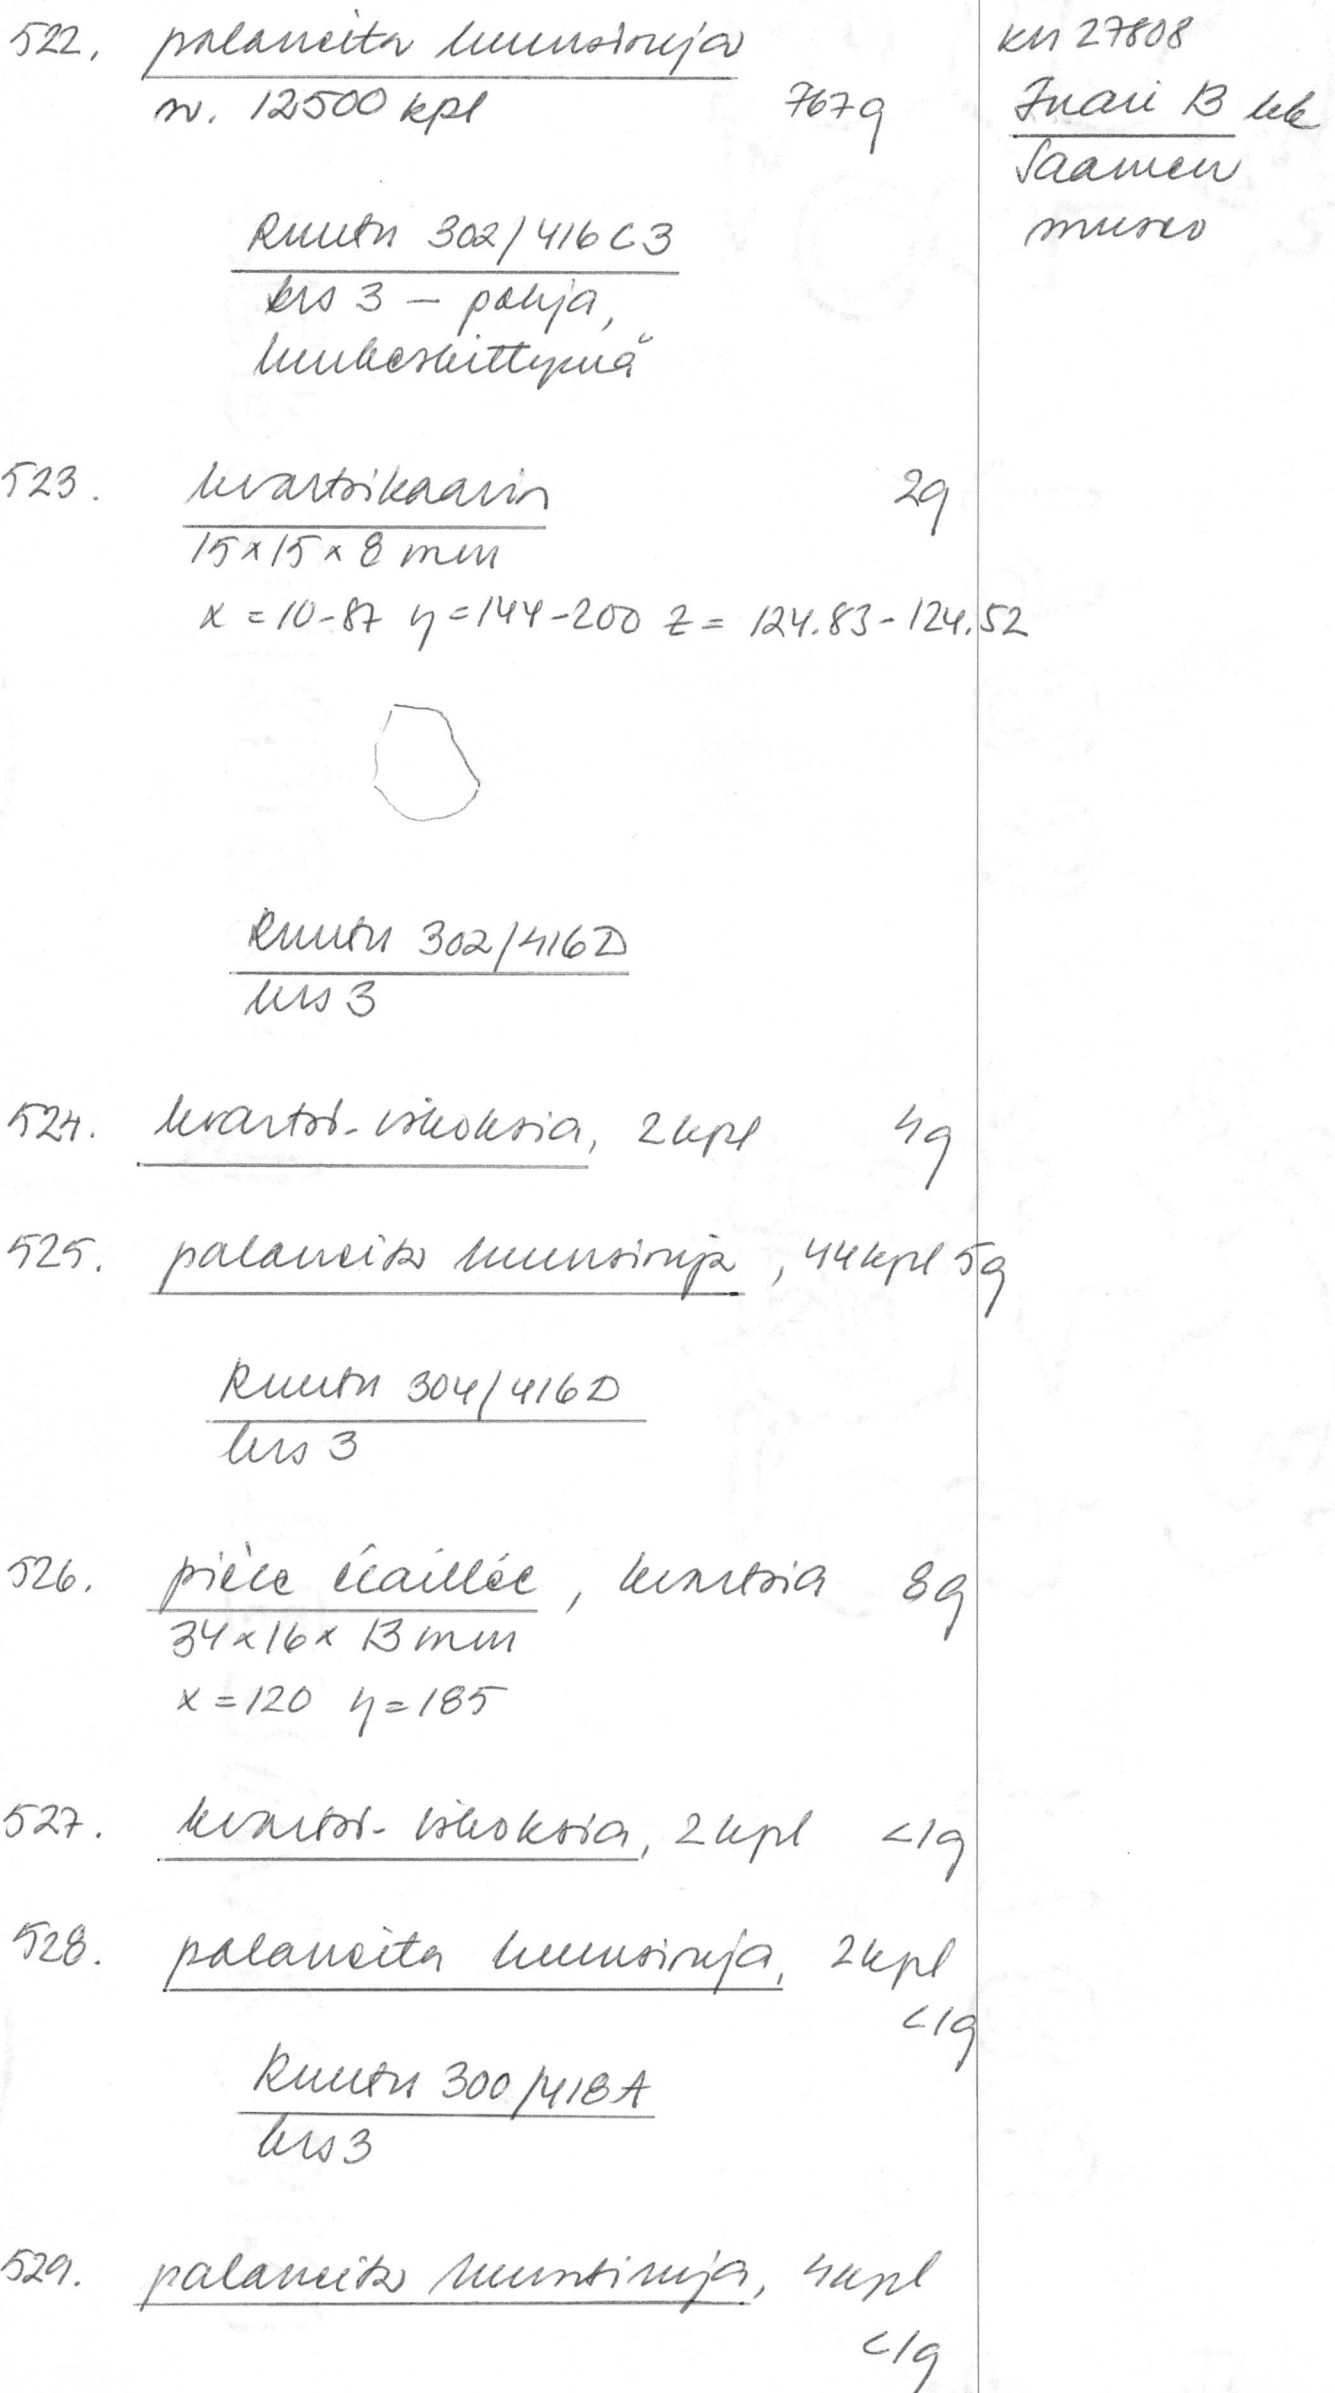 522. palaneita luunsiruja
n. 12500 kpl 767g
KM 27808
Inari 13 kk
Saamen
museo
Ruutu 302/416 C3
krs 3 – pohja,
luukeskittymä
523. kvartsikaavin 2g
15x15x8 mm
x = 10-87 y = 144-200 z = 124.83 - 124.52
Ruutu 302/416D
krs 3
524. kvartsi-iskoksia, 2 kpl 4g
525. palaneita luunsiruja, 44 kpl 5g
Ruutu 304/416D
krs 3
526. pièce écaillée, kvartsia 8g
34x16x13 mm
x = 120 y = 185
527. kvartsi-iskoksia, 2 kpl <1g
528. palaneita luunsiruja, 2 kpl
<1g
Ruutu 300/418A
krs 3
529. palaneita luunsiruja, 4 kpl
<1g